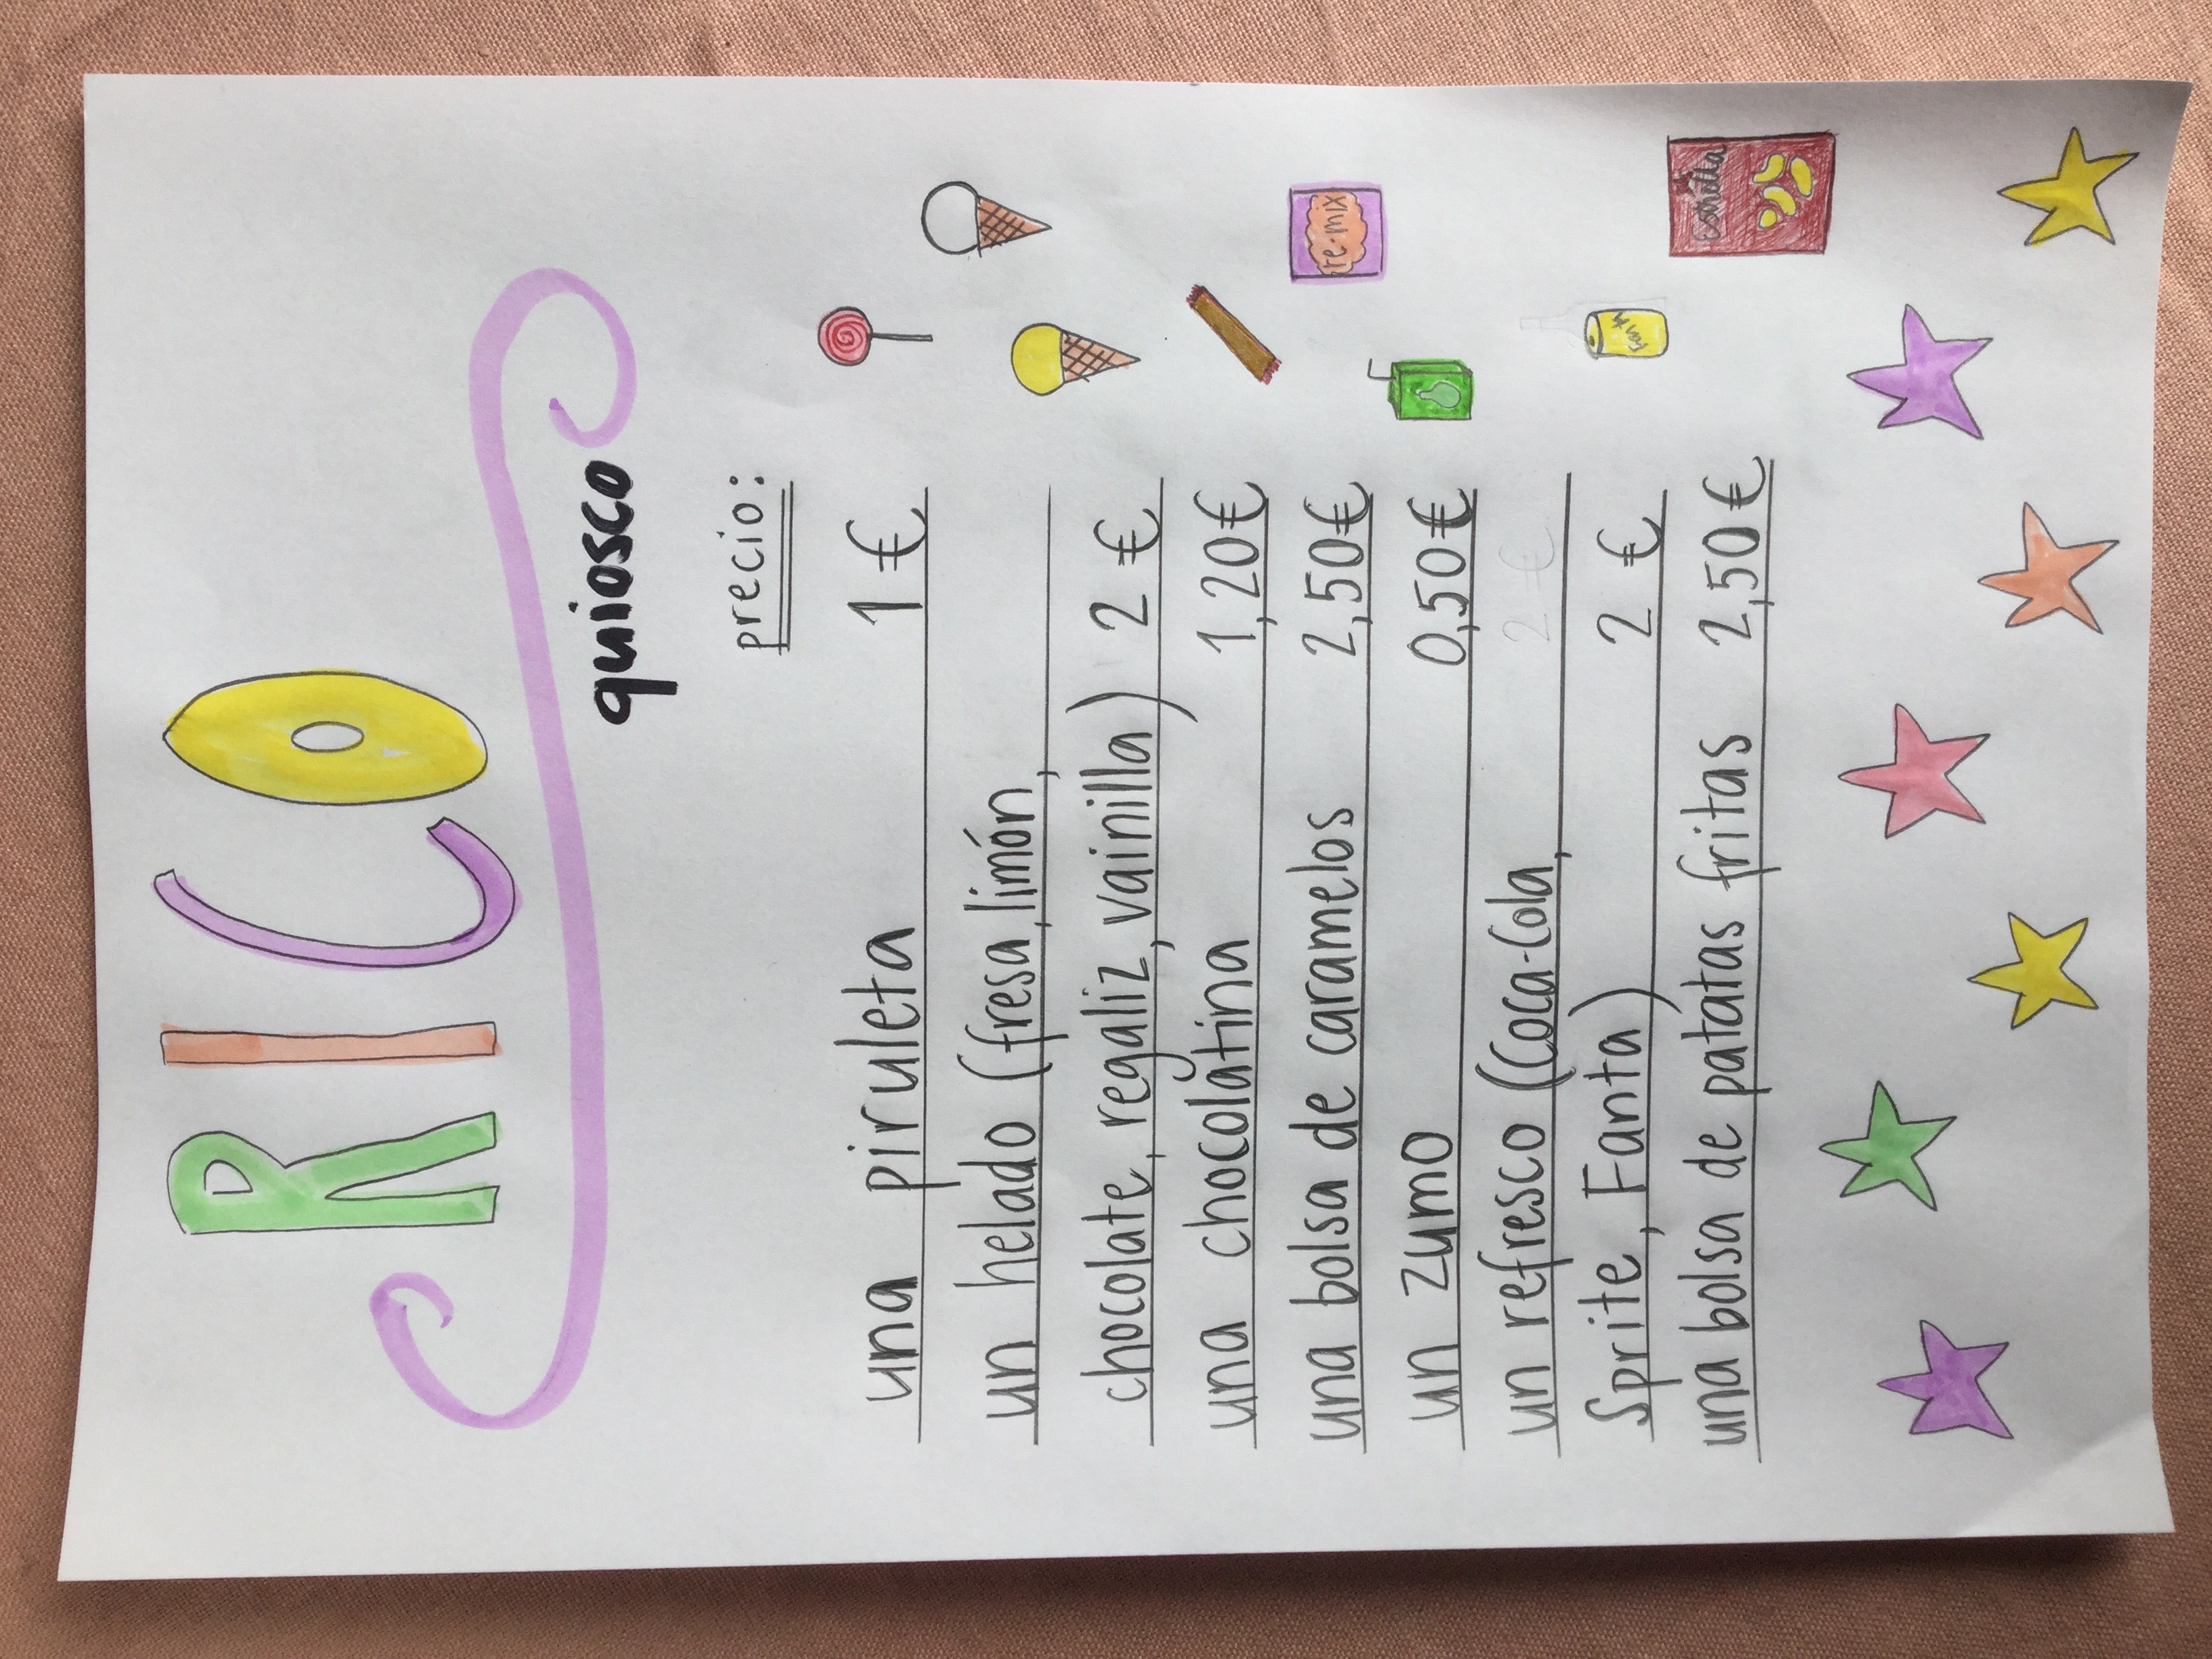 RICO
quiosco
precio:
una piruleta 1 €
un helado (fresa, limón,
chocolate, regaliz, vainilla) 2 €
una chocolatina 1,20 €
una bolsa de caramelos 2,50 €
un zumo 0,50 €
un refresco (Coca-Cola, 2 €
Sprite, Fanta) 2 €
una bolsa de patatas fritas 2,50 €
te-mix
Fanta
Estrella